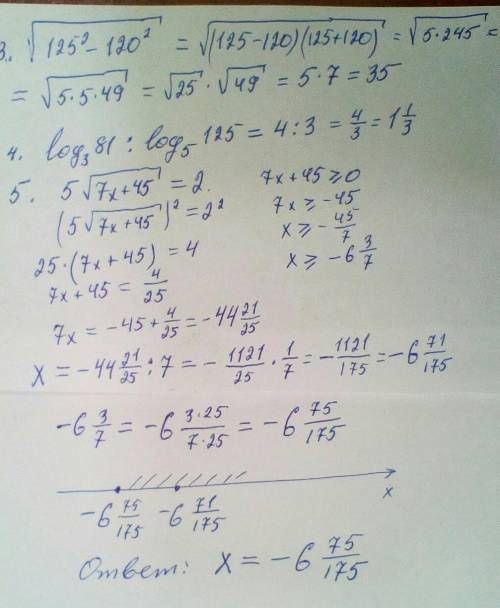 3. √(125² - 120²) = √((125-120)(125+120)) = √(5·245) =
= √(5·5·49) = √25 · √49 = 5·7 = 35
4. log₃81 : log₅125 = 4:3 = 4/3 = 1 1/3
5. 5√(7x+45) = 2. 7x+45 ≥ 0
(5√(7x+45))² = 2² 7x ≥ -45
25·(7x+45) = 4 x ≥ -45/7
7x+45 = 4/25 x ≥ -6 3/7
7x = -45 + 4/25 = -44 21/25
X = -44 21/25 : 7 = - 1121/25 · 1/7 = - 1121/175 = -6 71/175
-6 3/7 = -6 3·25/7·25 = -6 75/175
x
-6 75/175 -6 71/175
Ответ: x = -6 75/175